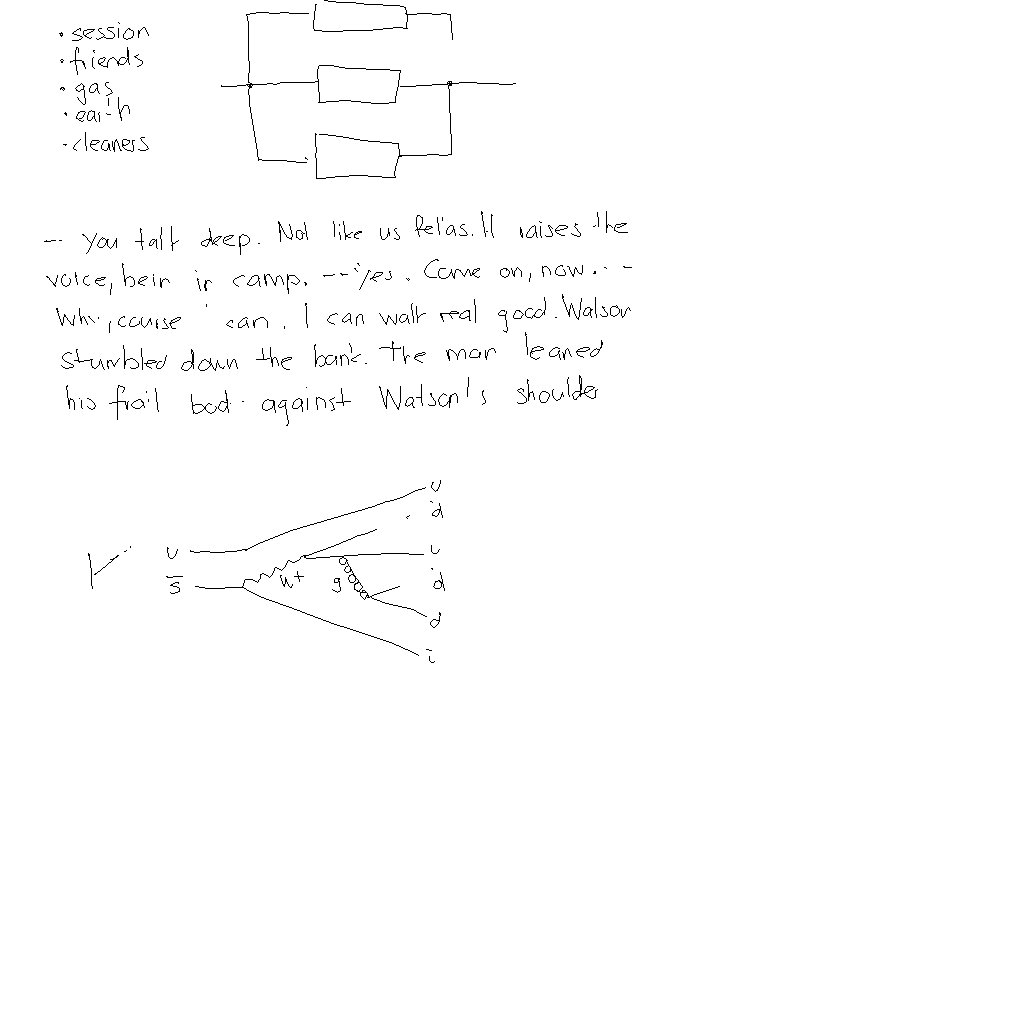 · session
· friends
· gas
· earth
· cleaners
-- You talk deep. Not like us fellas. It raises the
voice, bein in camp. -- Yes. Come on, now. --
Why, course I can. I can walk real good. Watson
stumbled down the bank. The man leaned
his frail body against Watson's shoulder
u
d
u
u
s̅
g
d
d